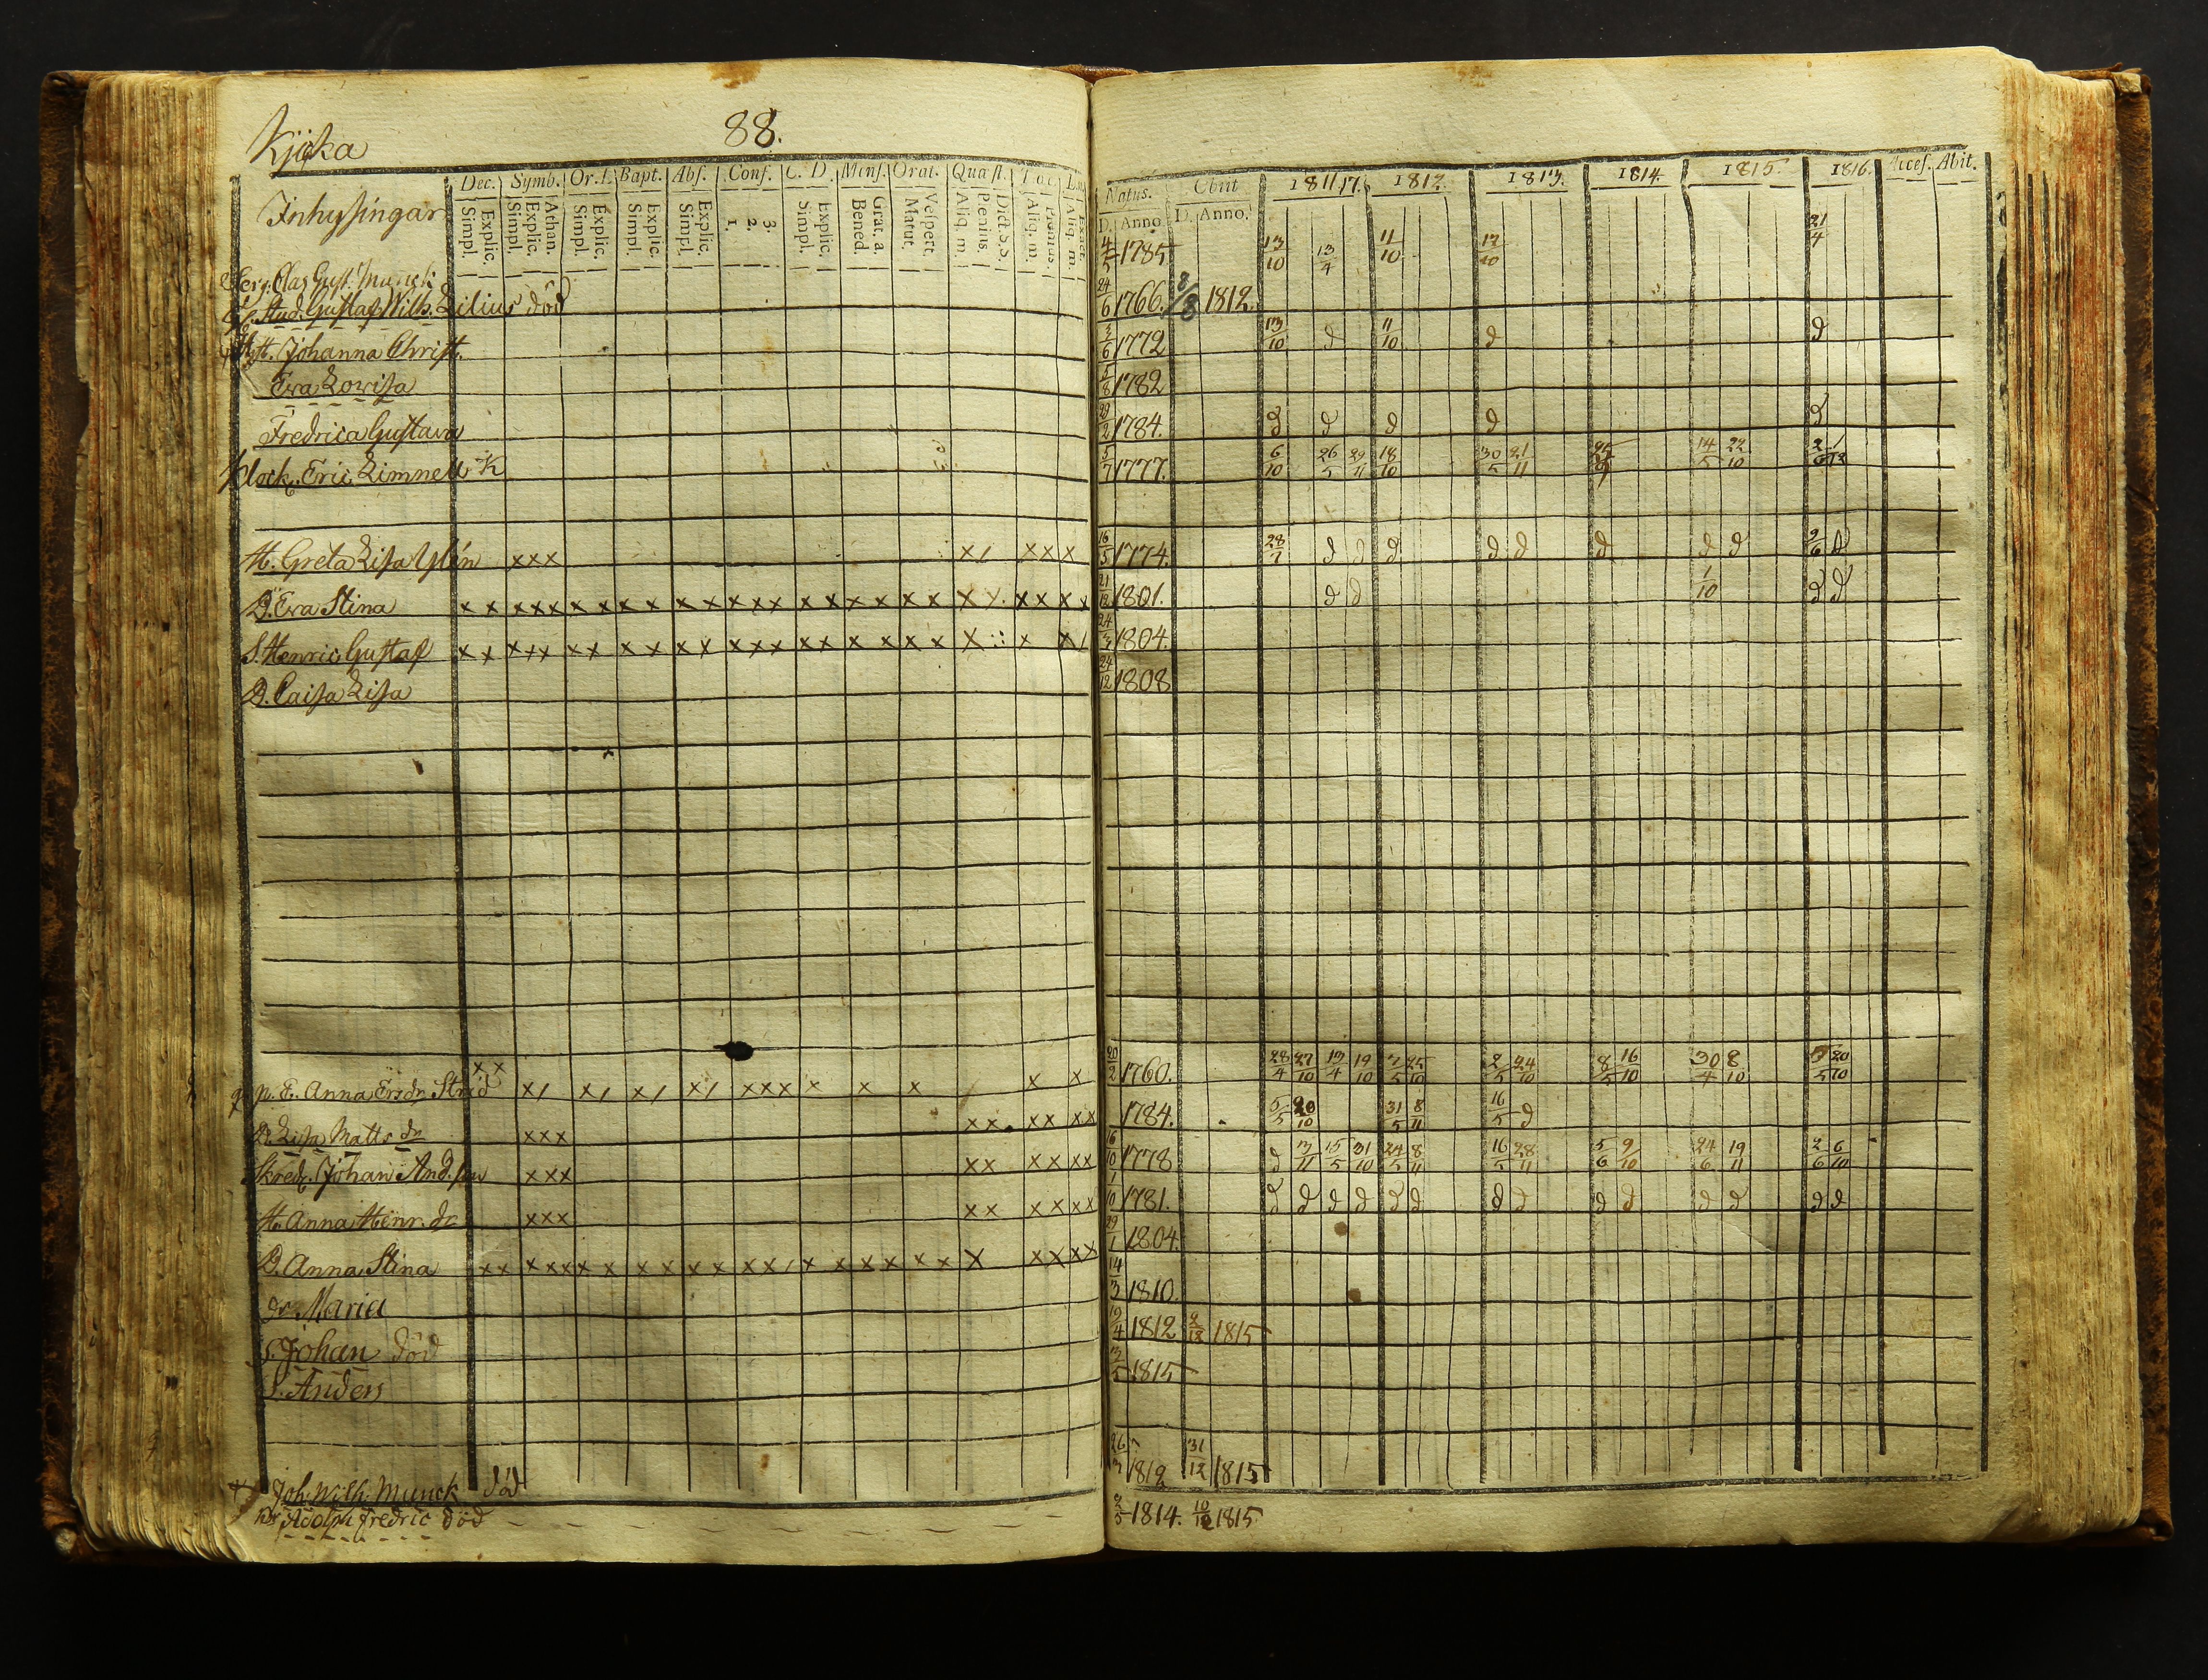 88.
Inhysingar
Dec. Symb. Or. D. Bapt. Abs. Conf. C. D. Mens. Orat. Quæst.
Explic. Simpl. Athan. Explic. Simpl. Explic. Simpl. Explic. Simpl. Explic. Simpl. 3. 2. 1. Explic. Simpl. Grat. a. Bened. Vespert. Matut. Dict. S. S. Plenius. Aliq. m. Plenius. Aliq. m. Exact. Aliq. m.
Natus. Obiit 1811, 17. 1812. 1813. 1814. 1815 1816. Acces. Abit.
D. Anno D. Anno.
Serj. Clas Gust. Munck 4/5 1785 13/10 13/4 11/10 12/10 21/4
Stud. Gustaf Wilh. Lilius död 24/6 1766. 8/8 1812.
H. Johanna Christ. 3/6 1772 13/10 d 11/10 d d
Eva Lovisa 5/8 1782
Fredrica Gustava 1784. d d d d d
Klock. Eric Limnell K 5/7 1777. 6/10 26/5 29/11 18/10 30/5 21/11 14/5 22/10
H. Greta Lisa Ylén xxx x/ xxx 16/5 1774. 28/7 d d d d d d d d 9/6 d
D. Eva Stina xx xxx xx xx xx xxx xx xx xx xx xx xx 21/12 1801. d d 1/10 d d
S. Henric Gustaf xx xxx xx xx xx xxx xx xx xx x x x/ 24/3 1804.
D. Caisa Lisa 24/12 1808
p. E. Anna Ersdr xx x/ x/ x/ x/ xxx x x x / x x 20/2 1760. 28/4 27/10 13/4 19/10 3/5 25/10 2/5 24/10 8/5 16/10 30/4 8/10 5/5 20/10
D. Lisa Matts dr xxx xx xx xx 1784. 5/5 20/10 31/5 8/11 16/5 d
Skred. Johan And.son xxx xx xx xx 16/10 1778 d 3/11 15/5 31/10 24/5 8/11 16/5 28/11 5/6 9/10 24/6 19/11 2/6 6/10
H. Anna Henr. dr xxx xx xx xx 1/10 1781. d d d d d d d d d d d d d d
D. Anna Stina xx xxx xx xx xx xx/ x x x x x x x xx xx 29/1 1804.
dr Maria 14/3 1810.
S. Johan död 19/4 1812 2/12 1815
S. Anders 3/5 1815
Joh. Wilh. Munck död 26/3 1812 31/12 1815
Adolph Fredric död 2/5 1814. 10/12 1815